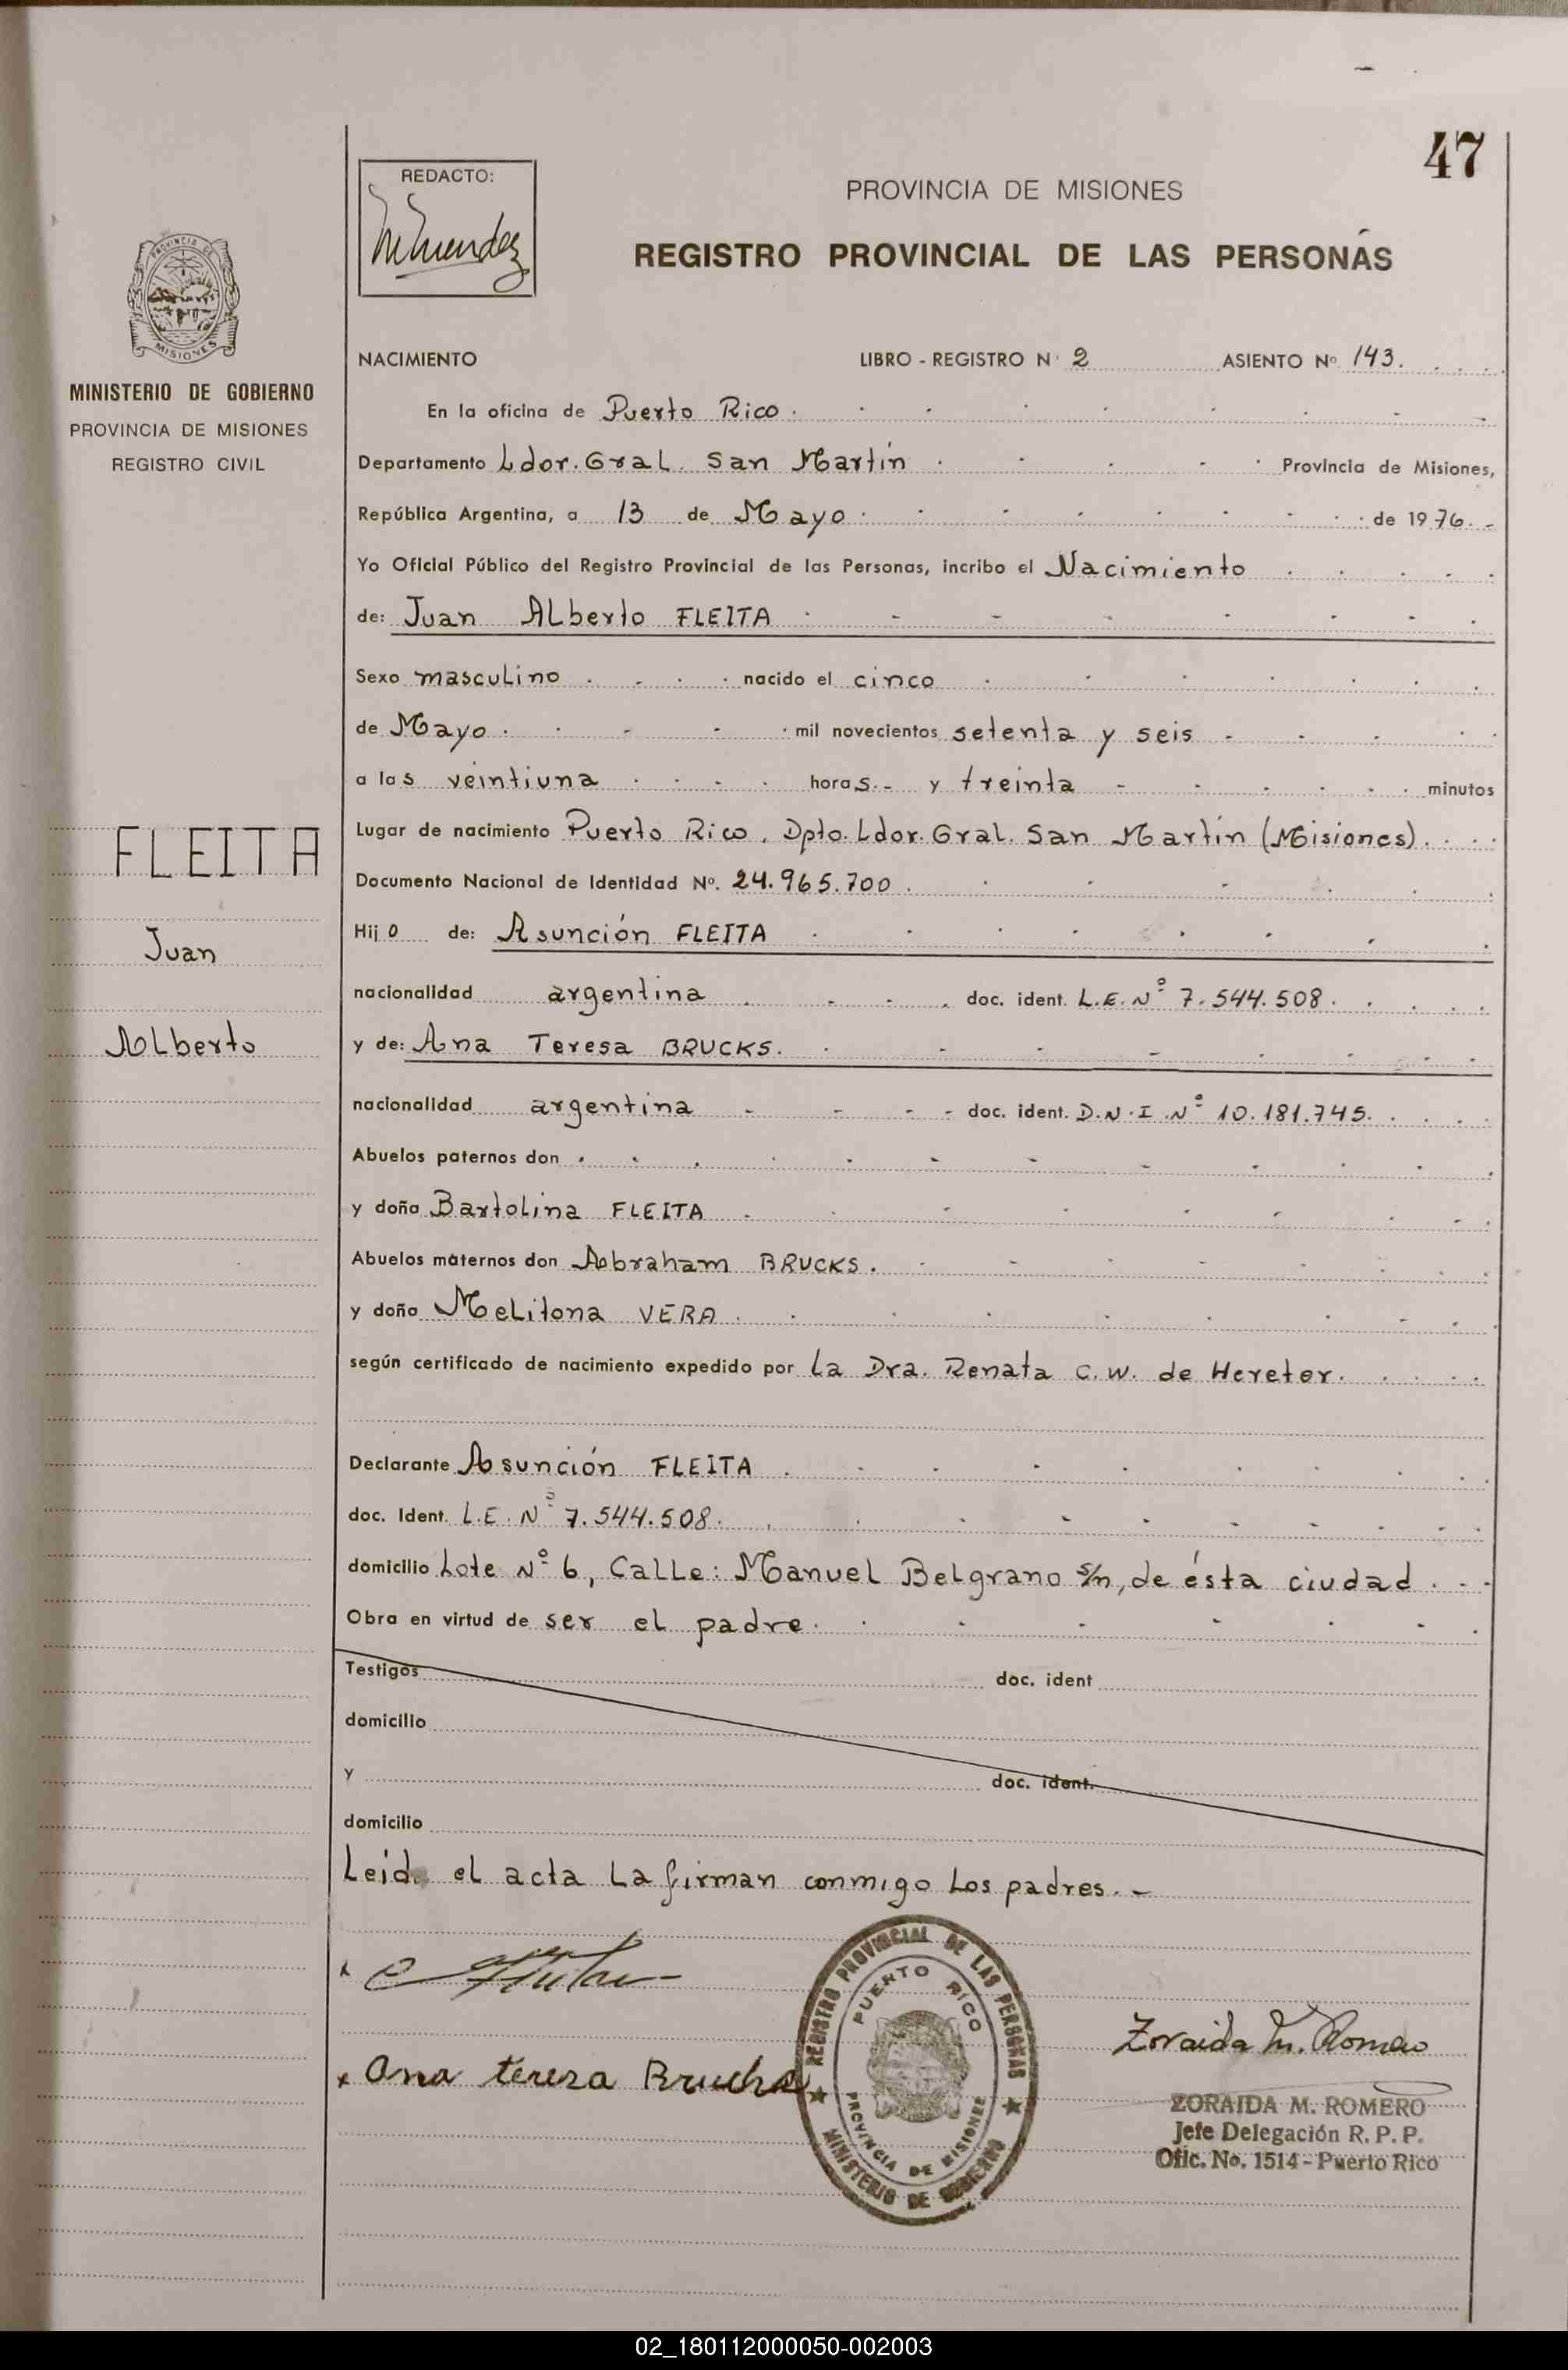 47
REDACTO:
PROVINCIA DE MISIONES
REGISTRO PROVINCIAL DE LAS PERSONAS
PROVINCIA DE
MISIONES
MINISTERIO DE GOBIERNO
PROVINCIA DE MISIONES
REGISTRO CIVIL
NACIMIENTO LIBRO - REGISTRO N° 2 ASIENTO Nº 143.
En la oficina de Puerto Rico.
Departamento Ldor. Gral. San Martín Provincia de Misiones,
República Argentina, a 13 de Mayo de 1976.-
Yo Oficial Público del Registro Provincial de las Personas, incribo el Nacimiento
de: Juan Alberto FLEITA
Sexo masculino nacido el cinco
de Mayo mil novecientos setenta y seis
a las veintiuna horas.- y treinta minutos
FLEITA
Juan
Alberto
Lugar de nacimiento Puerto Rico, Dpto. Ldor. Gral. San Martín (Misiones).
Documento Nacional de Identidad Nº. 24.965.700.
Hijo de: Asunción FLEITA
nacionalidad argentina doc. ident. L.E. Nº 7.544.508.
y de: Ana Teresa BRUCKS.
nacionalidad argentina doc. ident. D.N.I. Nº 10.181.745.
Abuelos paternos don
y doña Bartolina FLEITA
Abuelos maternos don Abraham BRUCKS.
y doña Melitona VERA
según certificado de nacimiento expedido por la Dra. Renata C.W. de Hereter.
Declarante Asunción FLEITA
doc. Ident. L.E. Nº 7.544.508.
domicilio Lote Nº 6, Calle: Manuel Belgrano s/n, de ésta ciudad
Obra en virtud de ser el padre.
Testigos doc. ident
domicilio
y doc. ident.
domicilio
Leíd el acta la firman conmigo los padres.-
Ana teresa Brucks
REGISTRO PROVINCIAL DE LAS PERSONAS
PUERTO RICO
PROVINCIA DE MISIONES
MINISTERIO DE GOBIERNO
Zoraida M. Romero
ZORAIDA M. ROMERO
Jefe Delegación R. P. P.
Ofic. No. 1514 - Puerto Rico
02_180112000050-002003